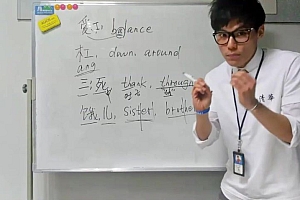 爱I: balance
杠, down, around
ang
三: 死, thank, through
儿, sister, brothe